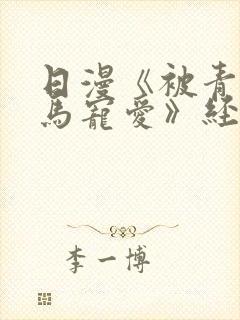 日漫《被青
马宠爱》经
李一博